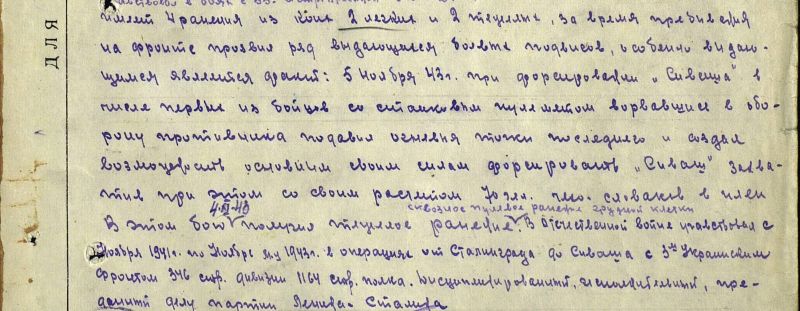 имеет 4 ранения из коих 2 легких и 2 тяжелых, за время пребывания
на фронте проявил ряд выдающихся боевых подвигов, особенно выдаю-
щимся является факт: 5 ноября 43г. при форсировании „Сиваша" в
числе первых из бойцов со станковым пулеметом ворвавшись в обо-
рону противника подавил огневыя точки последнего и создал
возможность основным своим силам форсировать „Сиваш" захва-
тив при этом со своим расчетом 70 чел. словаков в плен
4.XI-43 сквозное пулевое ранение грудной клетки
В этом бою получил тяжелое ранение. В Отечественной войне участвовал с
Ноября 1941г. по Ноябрь м-ц 1943г. в операциях от Сталинграда до Сиваша с 3им Украинским
фронтом 346 стр. дивизии 1164 стр. полка. Дисциплинированный, исполнительный, пре-
данный делу партии Ленина-Сталина
ДЛЯ